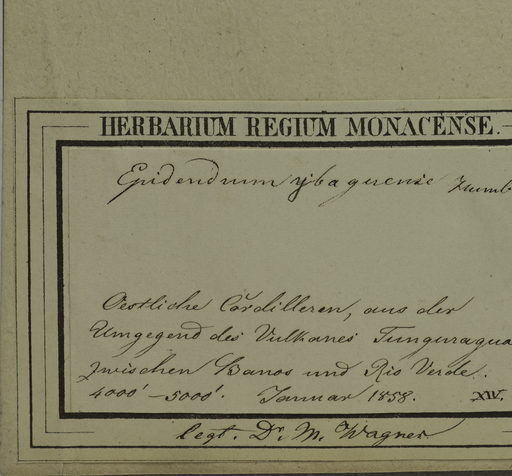 HERBARIUM REGIUM MONACENSE.
Epidendrum ybaguense Humb
Oestliche Cordilleren, aus der
Umgegend des Vulkanes Tunguragua
zwischen Banos und Rio Verde.
4000' – 5000'. Januar 1858. XIV.
legt. Dr. M. Wagner